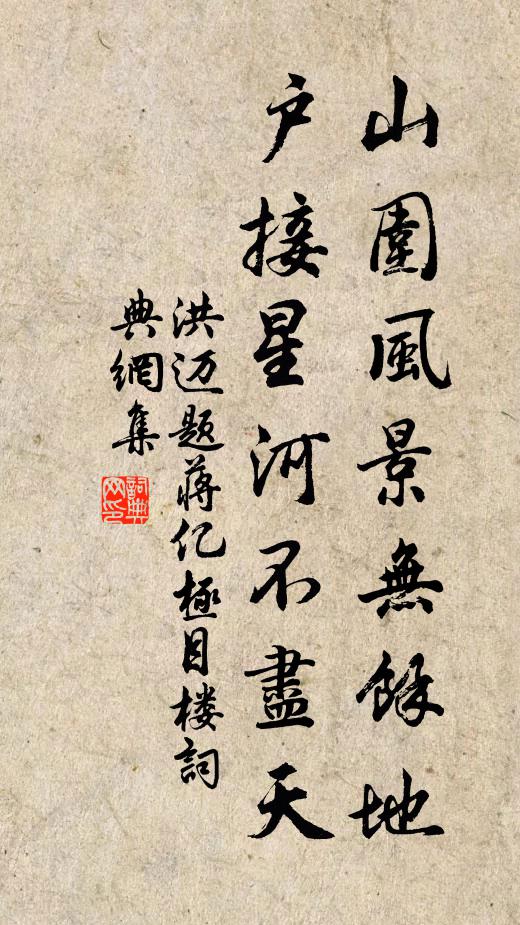 山圍風景無餘地
户接星河不盡天
洪迈题蒋亿極目楼詞
典網集
詞典
网印